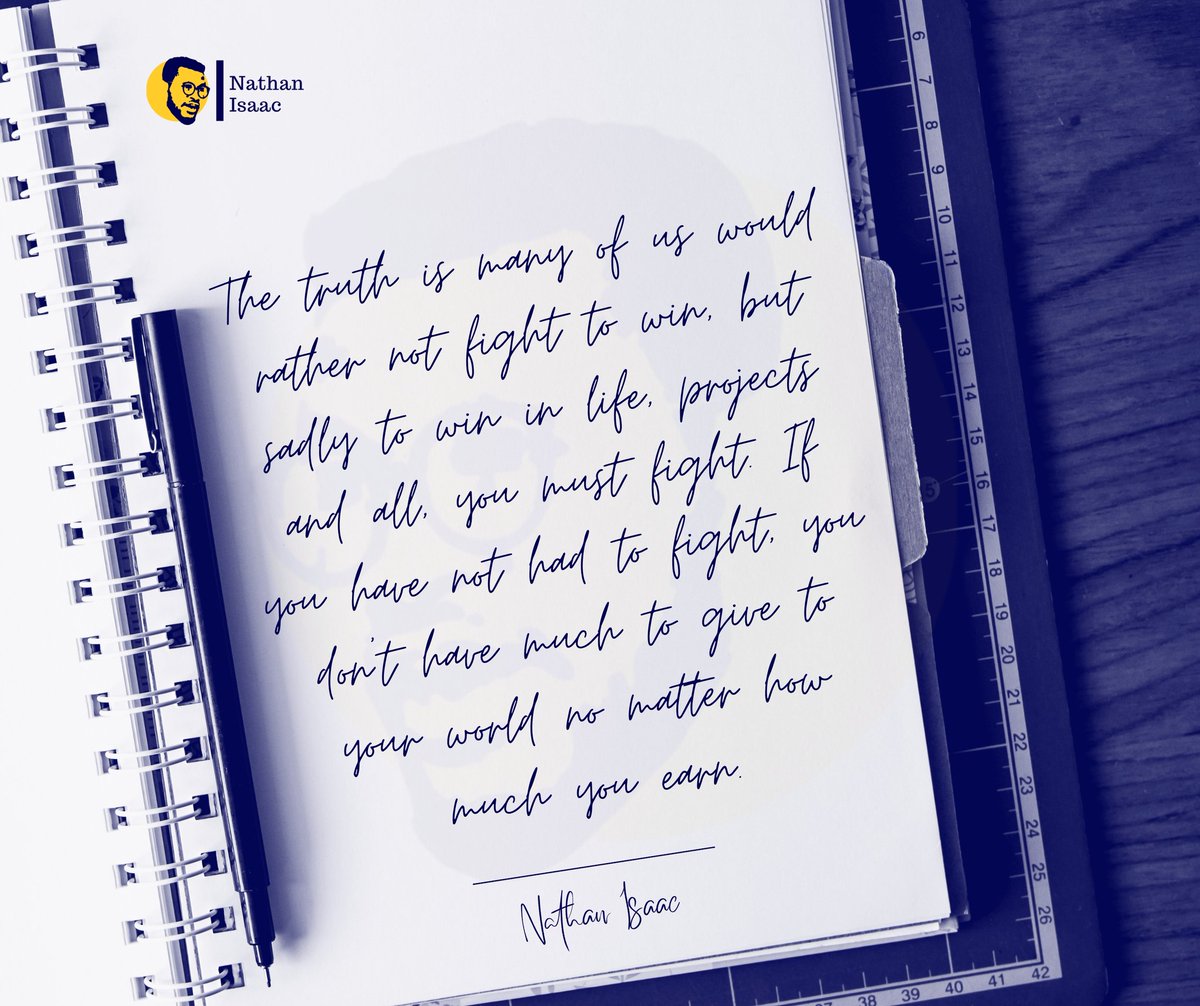 Nathan
Isaac
The truth is many of us would
rather not fight to win, but
sadly to win in life, projects
and all, you must fight. If
you have not had to fight, you
don't have much to give to
your world no matter how
much you earn.
Nathan Isaac
6
7
8
9
10
11
12
13
14
15
16
17
18
19
20
21
22
23
24
25
26
15
38
39
40
41
42